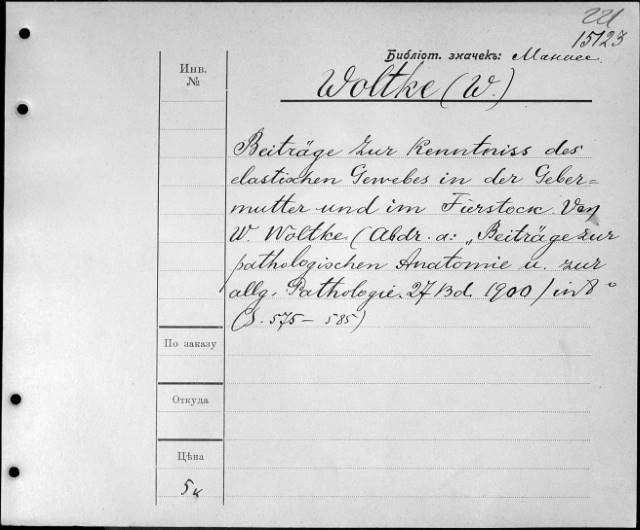 221
15123
Библіот. значекъ: Маннес.
Инв.
№
Woltke (W.)
Beiträge zur Kenntniss des
elastischen Gewebes in der Geber=
mutter und im Eierstock. Von
W. Woltke. (Abdr. a: „Beiträge zur
pathologischen Anatomie u. zur
allg. Pathologie. 27 Bd. 1900) in 8°
(S. 575 – 585)
По заказу
Откуда
Цѣна
5 к